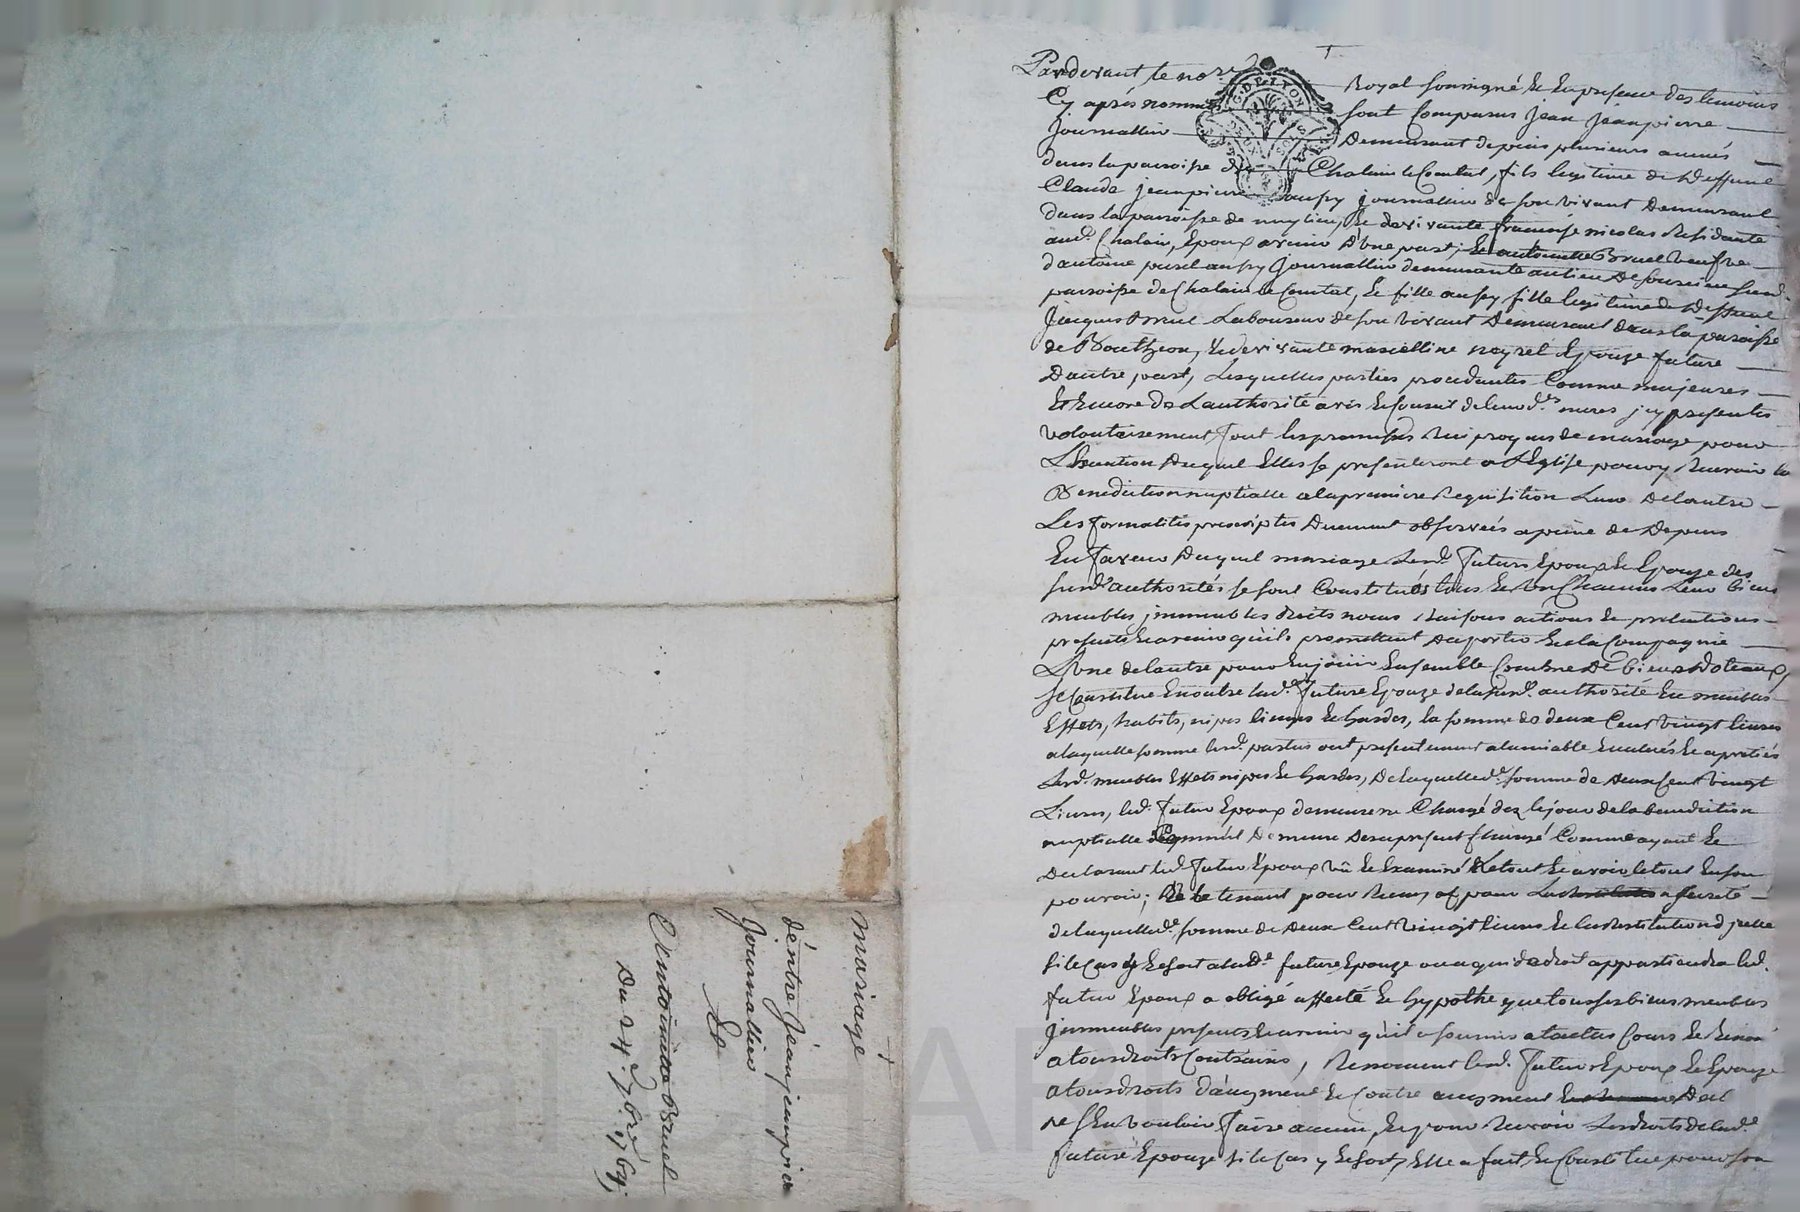 Pardevant le no.re Royal soussigné Et En presence des temoins
Cy après nommés sont Comparus Jean jéanpierre
Journallier Demeurant depuis plusieurs annés
dans la paroisse de Chalain le Comtal, fils legitime de Deffunt
Claude jeanpierre aussy journallier de son vivant Demeurant
dans la paroisse de, Et de vivante francoise nicolas Residante
aud. Chalain, Epoux avenir D'une part, Et antoinette Bruel veufve
d'antoine aussy Journallier demeurante au lieu De
paroisse de Chalain le Comtal, Et fille aussy fille legitime de Deffunt
Jacques Bruel Laboureur de son vivant Demeurant dans la paroisse
de Bouthéon, Et de vivante marcelline neyrel Epouze future
D'autre part, Lesquelles parties procedantes Comme majeures
Et Encore de L'authorité avis de leurd.es meres jcy presentes
volontairement sont les promesses Reciproques de mariage pour
L'Exécution Duquel Elles se presenteront a L'Eglise pour y Recevoir la
Benediction nuptialle a la premiere Requisition L'une De l'autre
Les formalités prescriptes Duement observées a peine de Depens
En faveur Duquel mariage Lesd. futurs Epoux Et Epouze des
susd. authorités se sont Constitués tous Et Un Chacuns Leurs biens
meubles jmmeubles droits noms Raisons actions Et pretentions
presents Et avenir qu'ils promettent Daporter En la Compagnie
L'une de l'autre pour En jouir Ensemble Comme De biens Dotaux,
se Constitue En outre lad.e future Epouze de la susd. authorité En meubles
Effets, habits, nipes linges Et hardes, la somme de deux Cent vingt livres
a laquelle somme lesd. parties ont presentement a l'amiable Evalués Et apretiés
Lesd. meubles Effets nipes Et hardes, De laquelle d.e somme de deux Cent vingt
Livres, led. futur Epoux demeurera Chargé dez le jour de la benediction
nuptialle Demeure Des a present Chargé Comme ayant Et
Declarant led. futur Epoux vû Et Examiné Le tout Et avoir le tout En son
pouvoir; Et le tenant pour Reçu, Et pour sureté
de laquelle d.e somme de deux Cent vingt livres Et la Restitution d'jcelle
si le Cas y Echoit a lad.e future Epouze ou a qui de droit appartiendra led.
futur Epoux a obligé affecté Et hypothequé tous ses biens meubles
jmmeubles presents Et avenir qu'il a soumis a toutes Cours Et Renon
a tous droits Contraires, Renoncent lesd. futurs Epoux Et Epouze
a tous droits d'augment Et Contre augment Declarant
ne s'En vouloir faire aucun, Et pour Recevoir Les droits de lad.e
future Epouze si le Cas y Echoit, Elle a fait Et Constitué pour son
mariage
d'entre jeanpierre
Journallier
Et
Antoinette Bruel
Du 24. 7bre 1769.